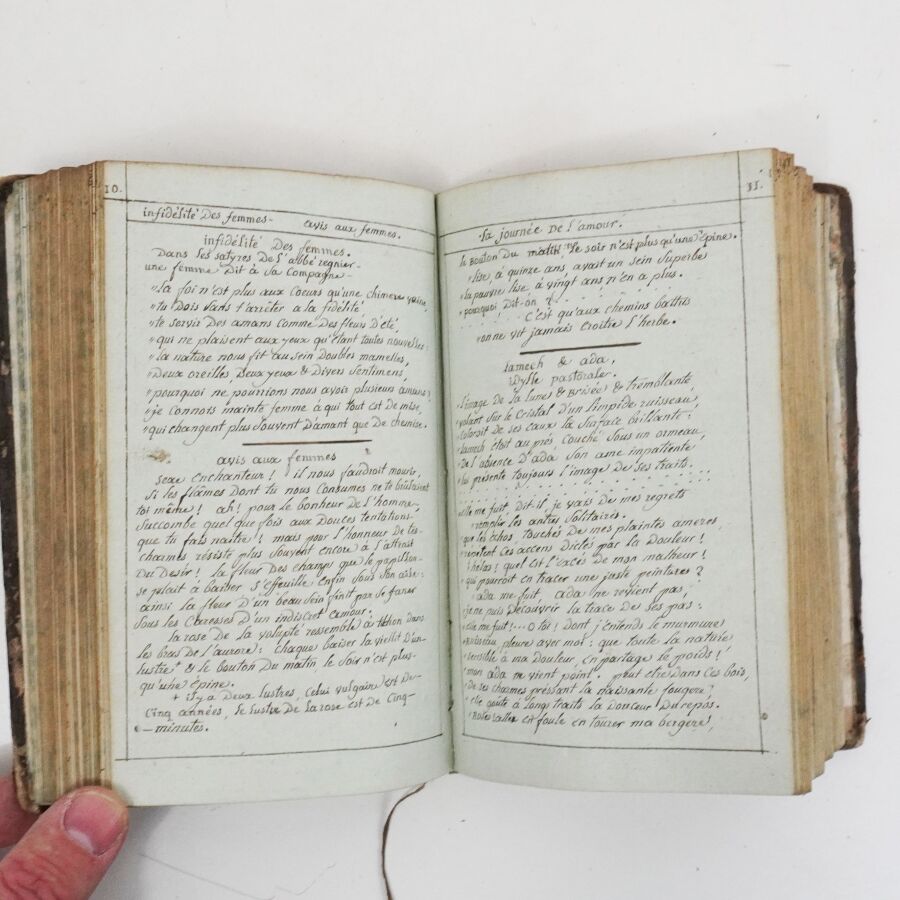 10.
infidélité Des femmes- avis aux femmes.
infidélité Des femmes.
Dans les satyres De L'abbé regnier-
une femme Dit à Sa Compagne-
"La foi n'est plus aux Coeurs qu'une chimere vaine,
"tu Dois sans t'arrêter à la fidélité
"te servir Des amans Comme Des fleurs D'été,
"qui ne plaisent aux yeux qu'étant toutes nouvelles:
"la nature nous fit au sein Doubles mamelles,
"Deux oreilles, Deux yeux & Divers Sentimens,
"pourquoi ne pourrions nous avoir plusieurs amans?
"je Connois mainte femme à qui tout est De mise,
"qui changent plus Souvent D'amant que De chemise.
avis aux femmes
sexe enchanteur! il nous faudroit mourir,
Si les flâmes Dont tu nous Consumes ne te brûloient
toi même! ah! pour le bonheur De l'homme,
Succombe quel que fois aux Douces tentations-
que tu fais naître! mais pour l'honneur De tes-
charmes résiste plus Souvent encore à l'attrait
Du Desir! la fleur Des champs que le papillon-
se plait à baiser S'effeuille enfin Sous Son aîle:
ainsi la fleur D'un beau Sein finit par se faner
Sous les Caresses D'un indiscret amour.
la rose De la volupté ressemble à tithon Dans
les bras De l'aurore: chaque baiser la vieillit D'un-
lustre+ & le bouton Du matin le Soir n'est plus-
qu'une épine.
+ il y a Deux lustres, Celui vulgaire est De-
Cinq années, le lustre De la rose est De Cinq-
minutes.
11.
La journée De L'amour.
le Bouton Du matin le Soir n'est plus qu'une épine.
"lise à quinze ans, avait un sein Superbe
"la pauvre lise à vingt ans n'en a plus.
"pourquoi, Dit-on?
C'est qu'aux chemins battus
"on ne vit jamais Croître l'herbe.
Lamech & ada,
idylle pastorale.
L'image De La lune & Brisée & tremblante,
volant sur le Cristal D'un limpide ruisseau,
Coloroit De ses eaux la Surface brillante:
Lamech étoit au près Couché Sous un ormeau,
De l'absence D'ada Son ame impatiente
lui présente toujours l'image De Ses traits.
elle me fuit, Dit-il, je vais De mes regrets
remplir les antres Solitaires.
que les échos, touchés De mes plaintes ameres,
répetent Ces accens Dictés par la Douleur!
helas! quel est l'excès De mon malheur!
qui pourroit en tracer une juste peinture?
ada me fuit, ada ne revient pas,
je ne puis Découvrir la trace De ses pas:
elle me fuit!... O toi! Dont j'entends le murmure
Ruisseau, pleure avec moi: que toute la nature
sensible à ma Douleur, en partage le poids!
mon ada ne vient point. peut être Dans Ces bois,
De ses charmes pressant la naissante fougere,
elle goute à longs traits la Douceur Du repos.
en foule entourer ma bergere,